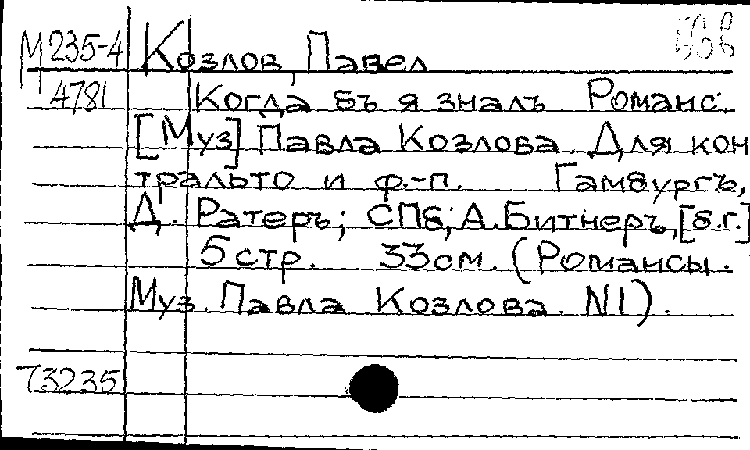 М 235-4 Козлов, Павел
4781 Когда бъ я зналъ Романс.
[Муз] Павла Козлова. Для кон
тральто и ф.-п. Гамбургъ,
Д. Ратеръ; СПб; А. Битнеръ, [б.г.]
5 стр. 33 см. (Романсы.
Муз. Павла Козлова. N1).
73235